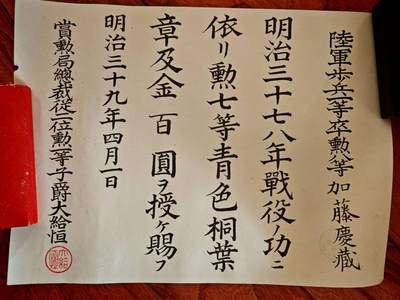 陸軍歩兵一等卒勲八等 加藤慶藏
明治三十七八年戰役ノ功ニ
依リ勲七等青色桐葉
章及金百圓ヲ授ケ賜フ
明治三十九年四月一日
賞勲局總裁從二位勲一等子爵大給恒